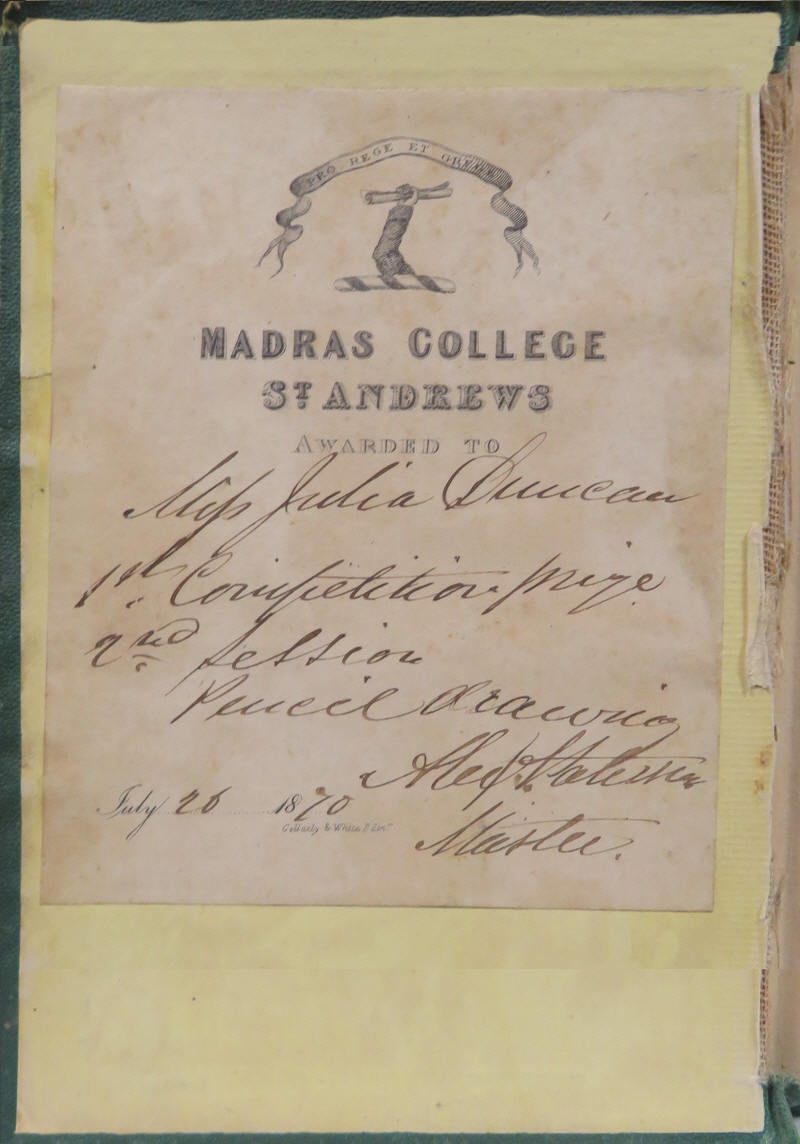 PRO REGE ET GREGE
MADRAS COLLEGE
ST ANDREWS
AWARDED TO
Miss Julia Duncan
1st Competition prize
2nd Session
Pencil drawing
Alexr Paterson
July 26 1870
Master.